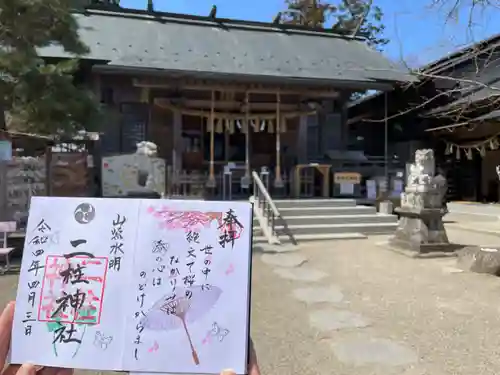 奉拝
世の中に
絶えて桜の
なかりせば
春の心は
のどけからまし
山紫水明
二柱神社
令和四年四月三日